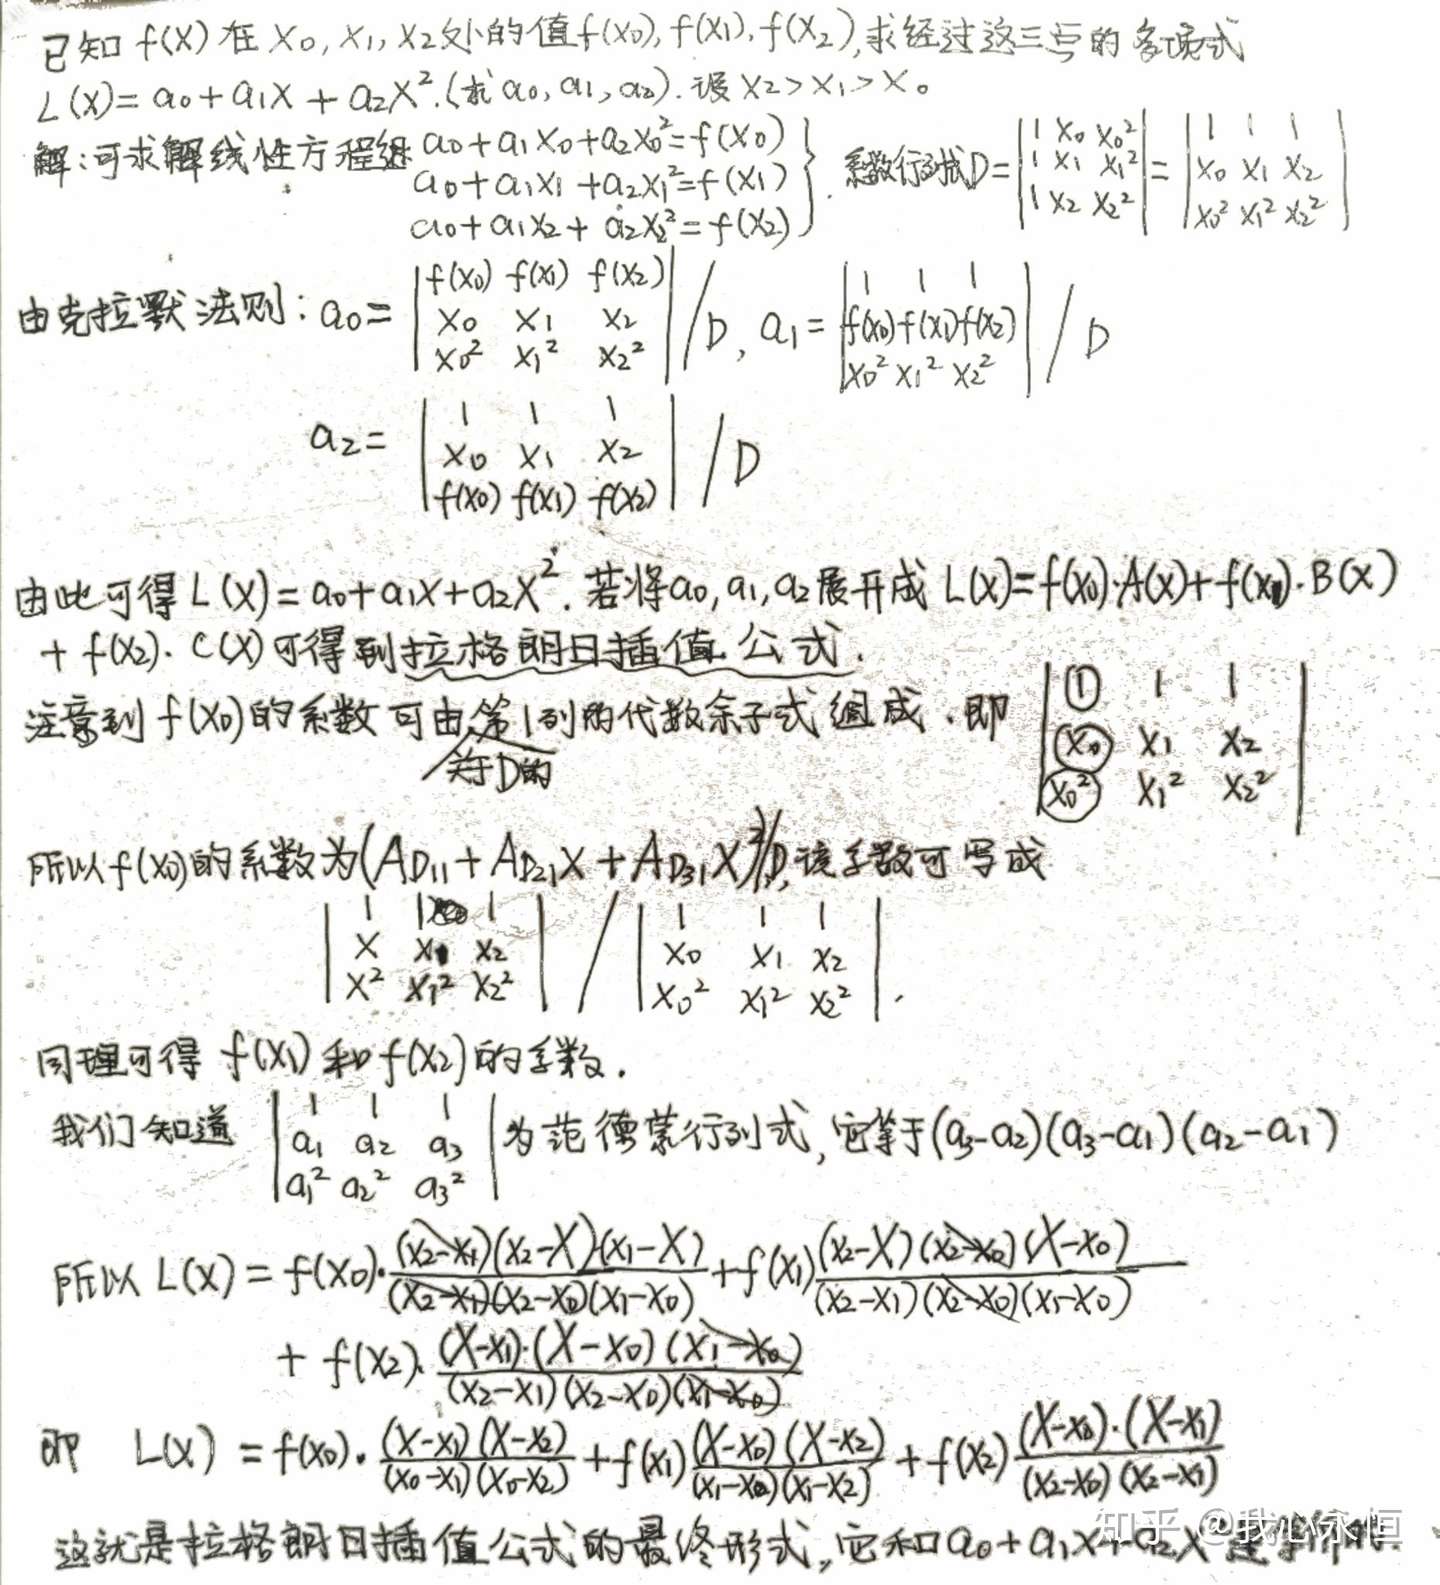 已知 f(x) 在 x₀, x₁, x₂处的值f(x₀), f(x₁), f(x₂), 求经过这三点的多项式
L(x)= a₀+a₁x + a₂x². (求 a₀, a₁, a₂). 设 x₂>x₁>x₀
解: 可求解线性方程组 a₀+a₁x₀+a₂x₀²=f(x₀)
a₀+a₁x₁+a₂x₁²=f(x₁)
a₀+a₁x₂+a₂x₂²=f(x₂)
系数行列式D= |1 x₀ x₀²; 1 x₁ x₁²; 1 x₂ x₂²| = |1 1 1; x₀ x₁ x₂; x₀² x₁² x₂²|
由克拉默法则: a₀= |f(x₀) f(x₁) f(x₂); x₀ x₁ x₂; x₀² x₁² x₂²| / D, a₁= |1 1 1; f(x₀) f(x₁) f(x₂); x₀² x₁² x₂²| / D
a₂= |1 1 1; x₀ x₁ x₂; f(x₀) f(x₁) f(x₂)| / D
由此可得 L(x)= a₀+a₁x+a₂x². 若将a₀, a₁, a₂展开成 L(x)=f(x₀)·A(x)+f(x₁)·B(x)
+ f(x₂)·C(x) 可得到拉格朗日插值公式.
注意到 f(x₀)的系数可由关于D的第1列的代数余子式组成. 即 |1 1 1; x₀ x₁ x₂; x₀² x₁² x₂²|
所以f(x₀)的系数为(A_D₁₁+A_D₂₁x+A_D₃₁x²)/D, 该系数可写成
|1 1 1; x x₁ x₂; x² x₁² x₂²| / |1 1 1; x₀ x₁ x₂; x₀² x₁² x₂²|.
同理可得 f(x₁) 和 f(x₂) 的系数.
我们知道 |1 1 1; a₁ a₂ a₃; a₁² a₂² a₃²| 为范德蒙行列式, 它等于(a₃-a₂)(a₃-a₁)(a₂-a₁)
所以 L(x) = f(x₀)·(x₂-x₁)(x₂-x)·(x₁-x)/(x₂-x₁)(x₂-x₀)(x₁-x₀) + f(x₁)(x₂-x)(x₂-x₀)(x-x₀)/(x₂-x₁)(x₂-x₀)(x₁-x₀)
+ f(x₂)·(x-x₁)·(x-x₀)(x₁-x₀)/(x₂-x₁)(x₂-x₀)(x₁-x₀)
即 L(x) = f(x₀)·(x-x₁)(x-x₂)/(x₀-x₁)(x₀-x₂) + f(x₁)(x-x₀)(x-x₂)/(x₁-x₀)(x₁-x₂) + f(x₂)(x-x₀)·(x-x₁)/(x₂-x₀)(x₂-x₁)
这就是拉格朗日插值公式的最终形式, 它和a₀+a₁x+a₂x
知乎 @我心永恒